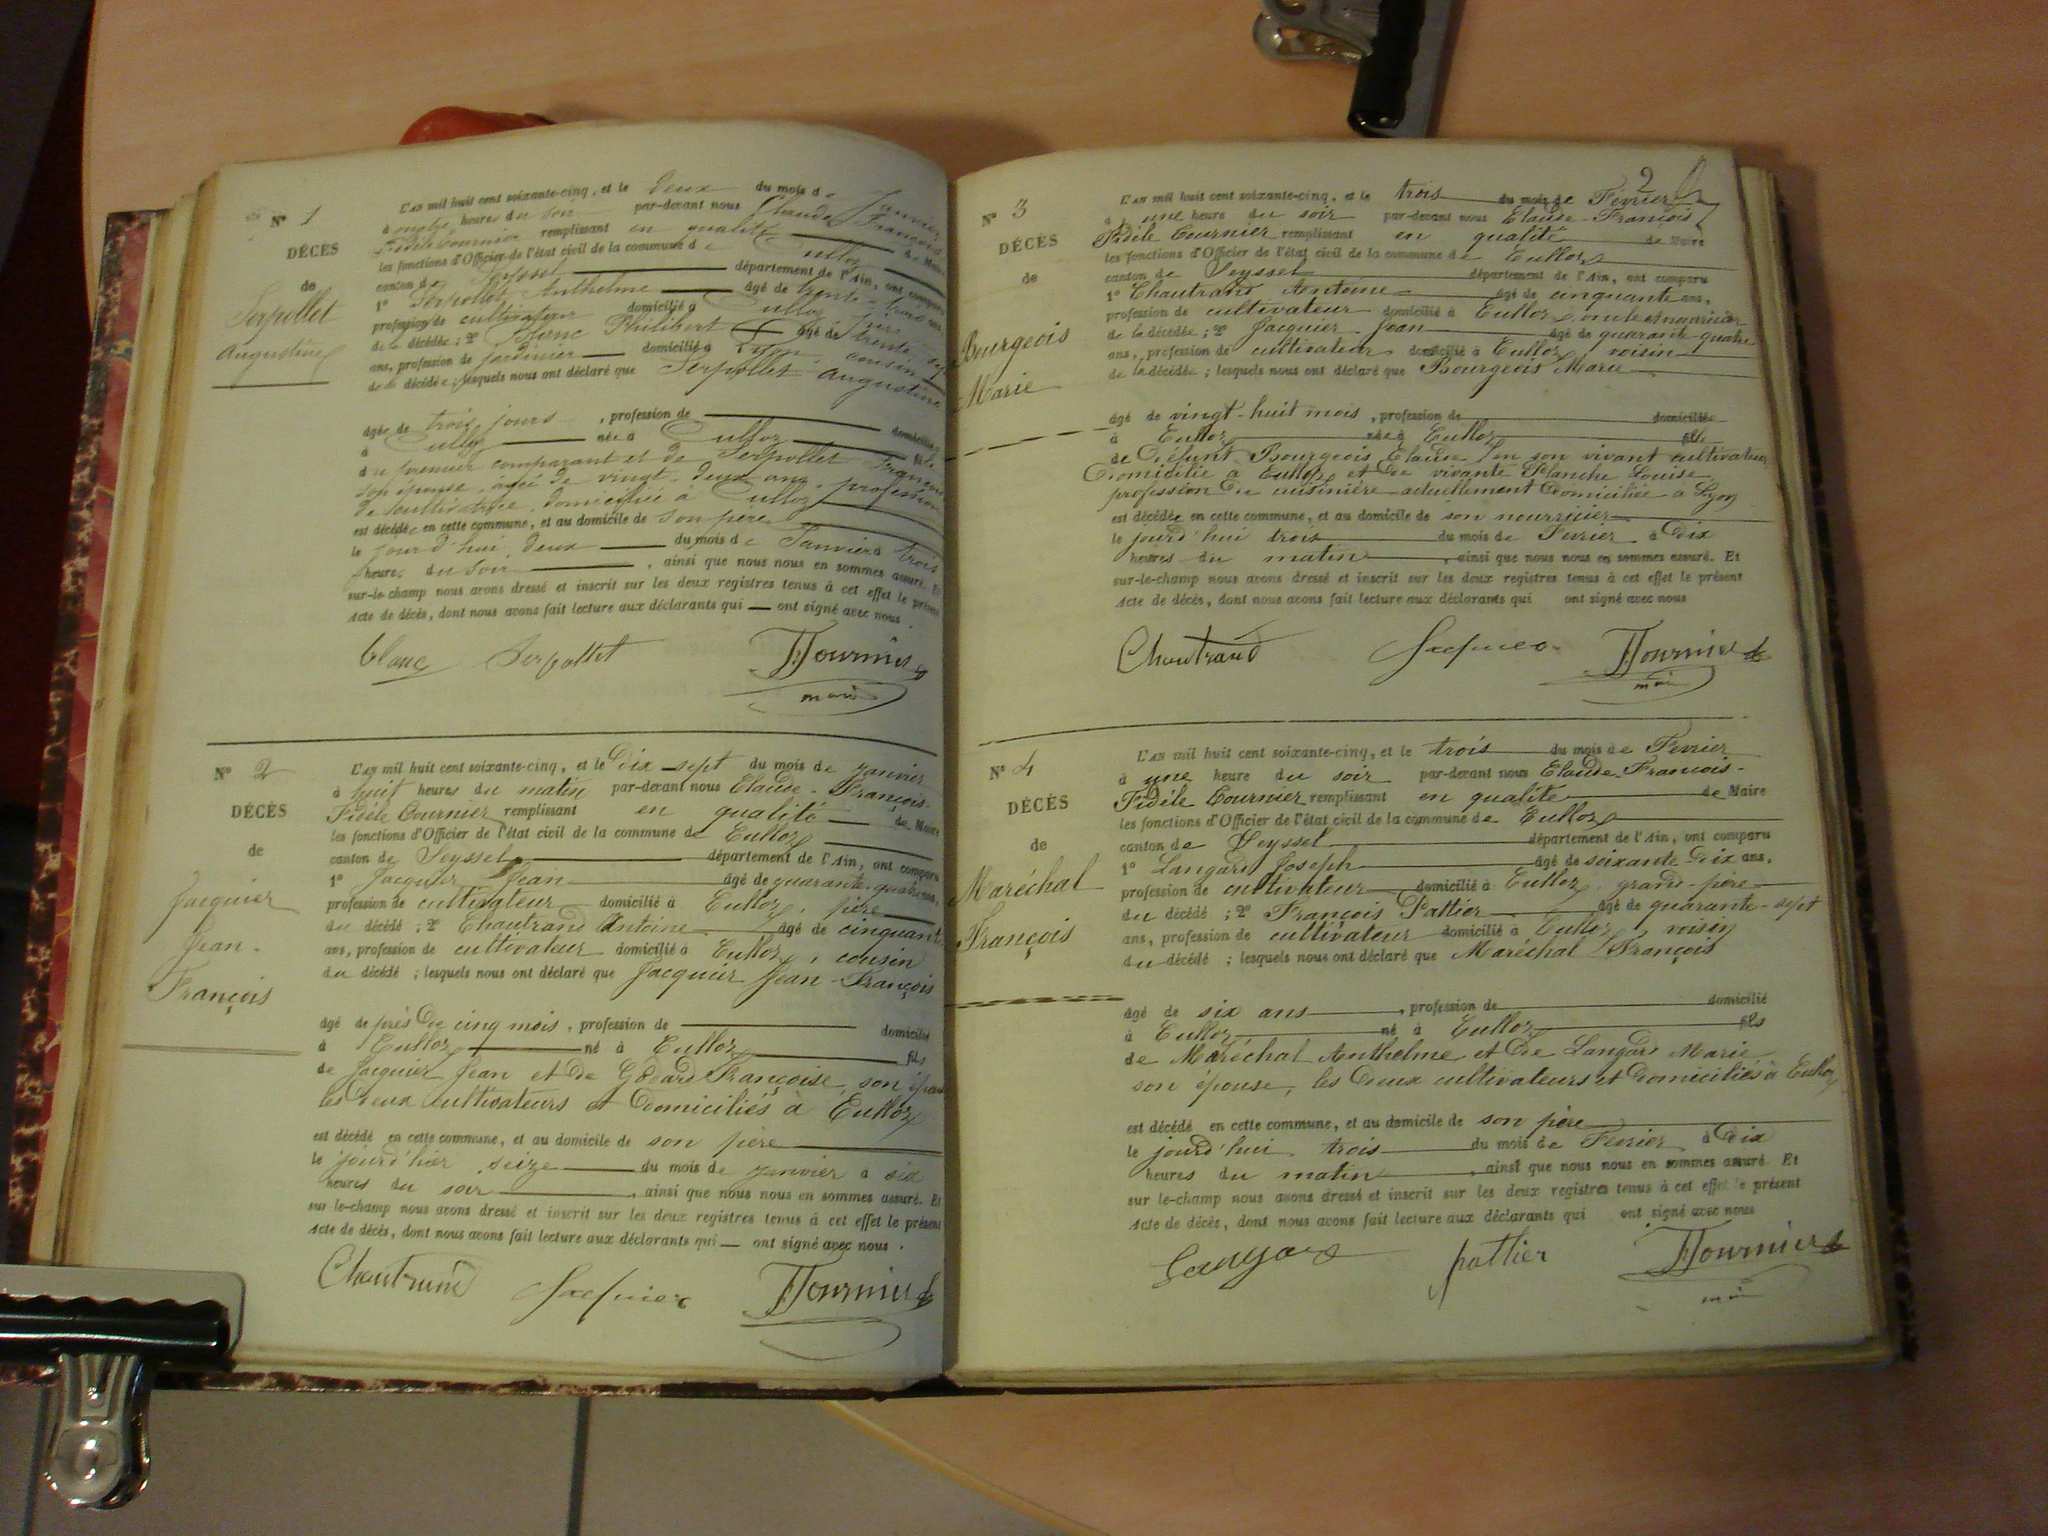 N° 1
DÉCÈS
de
Serpollet
Augustine
L'AN mil huit cent soixante-cinq, et le deux du mois de Janvier
à onze heures du soir par-devant nous Claude François
Fidèle Fournier remplissant en qualité de Maire
les fonctions d'Officier de l'état civil de la commune de Culloz
canton de Seyssel département de l'Ain, ont comparu
1° Serpollet Anthelme âgé de trente-trois ans,
profession de cultivateur domicilié à Culloz, père
de la décédée; 2° Blanc Philibert âgé de trente-sept
ans, profession de jardinier domicilié à Lyon, cousin
de la décédée; lesquels nous ont déclaré que Serpollet Augustine
âgée de trois jours, profession de domiciliée
à Culloz née à Culloz fille
du premier comparant et de Serpollet
son épouse, âgée de vingt-deux ans, profession
de cultivatrice, domiciliée à Culloz
est décédée en cette commune, et au domicile de son père
le jourd'hui deux du mois de Janvier à trois
heures du soir, ainsi que nous nous en sommes assuré. Et
sur-le-champ nous avons dressé et inscrit sur les deux registres tenus à cet effet le présent
acte de décès, dont nous avons fait lecture aux déclarants qui — ont signé avec nous.
Blanc Serpollet F Fournier
maire
N° 2
DÉCÈS
de
Jacquier
Jean-
François
L'AN mil huit cent soixante-cinq, et le Dix-sept du mois de janvier
à huit heures du matin par-devant nous Claude-François-
Fidèle Fournier remplissant en qualité de Maire
les fonctions d'Officier de l'état civil de la commune de Culloz
canton de Seyssel département de l'Ain, ont comparu
1° Jacquier Jean âgé de quarante-quatre ans,
profession de cultivateur domicilié à Culloz, père
du décédé; 2° Chautrand Antoine âgé de cinquante
ans, profession de cultivateur domicilié à Culloz, cousin
du décédé; lesquels nous ont déclaré que Jacquier Jean-François
âgé de près de cinq mois, profession de domicilié
à Culloz né à Culloz fils
de Jacquier Jean et de Godard Françoise, son épouse
les deux cultivateurs et domiciliés à Culloz
est décédé en cette commune, et au domicile de son père
le jourd'hier seize du mois de janvier à six
heures du soir, ainsi que nous nous en sommes assuré. Et
sur-le-champ nous avons dressé et inscrit sur les deux registres tenus à cet effet le présent
acte de décès, dont nous avons fait lecture aux déclarants qui — ont signé avec nous.
Chautrand Jacquier F Fournier
2
N° 3
DÉCÈS
de
Bourgeois
Marie
L'AN mil huit cent soixante-cinq, et le trois du mois de Février
à une heure du soir par-devant nous Claude-François
Fidèle Fournier remplissant en qualité de Maire
les fonctions d'Officier de l'état civil de la commune de Culloz
canton de Seyssel département de l'Ain, ont comparu
1° Chautrand Antoine âgé de cinquante ans,
profession de cultivateur domicilié à Culloz, oncle et nourricier
de la décédée; 2° Jacquier Jean âgé de quarante-quatre
ans, profession de cultivateur domicilié à Culloz, voisin
de la décédée; lesquels nous ont déclaré que Bourgeois Marie
âgé de vingt-huit mois, profession de domiciliée
à Culloz née à Culloz fille
de Défunt Bourgeois Claude en son vivant cultivateur
Domicilié à Culloz, et de vivante Planche Louise
profession de cuisinière actuellement domiciliée à Lyon
est décédée en cette commune, et au domicile de son nourricier
le jourd'hui trois du mois de Février à Dix
heures du matin, ainsi que nous nous en sommes assuré. Et
sur-le-champ nous avons dressé et inscrit sur les deux registres tenus à cet effet le présent
acte de décès, dont nous avons fait lecture aux déclarants qui ont signé avec nous
Chautrand Jacquier F Fournier
maire
N° 4
DÉCÈS
de
Maréchal
François
L'AN mil huit cent soixante-cinq, et le trois du mois de Février
à une heure du soir par-devant nous Claude-François-
Fidèle Fournier remplissant en qualité de Maire
les fonctions d'Officier de l'état civil de la commune de Culloz
canton de Seyssel département de l'Ain, ont comparu
1° Langard Joseph âgé de soixante-Dix ans,
profession de cultivateur domicilié à Culloz, grand-père
du décédé; 2° François Pattier âgé de quarante-sept
ans, profession de cultivateur domicilié à Culloz, voisin
du décédé; lesquels nous ont déclaré que Maréchal François
âgé de six ans, profession de domicilié
à Culloz né à Culloz fils
de Maréchal Anthelme et de Langard Marie
son épouse, les deux cultivateurs et domiciliés à Culloz
est décédé en cette commune, et au domicile de son père
le jourd'hui trois du mois de Février à Dix
heures du matin, ainsi que nous nous en sommes assuré. Et
sur le-champ nous avons dressé et inscrit sur les deux registres tenus à cet effet le présent
acte de décès, dont nous avons fait lecture aux déclarants qui ont signé avec nous
Langard pattier F Fournier
maire